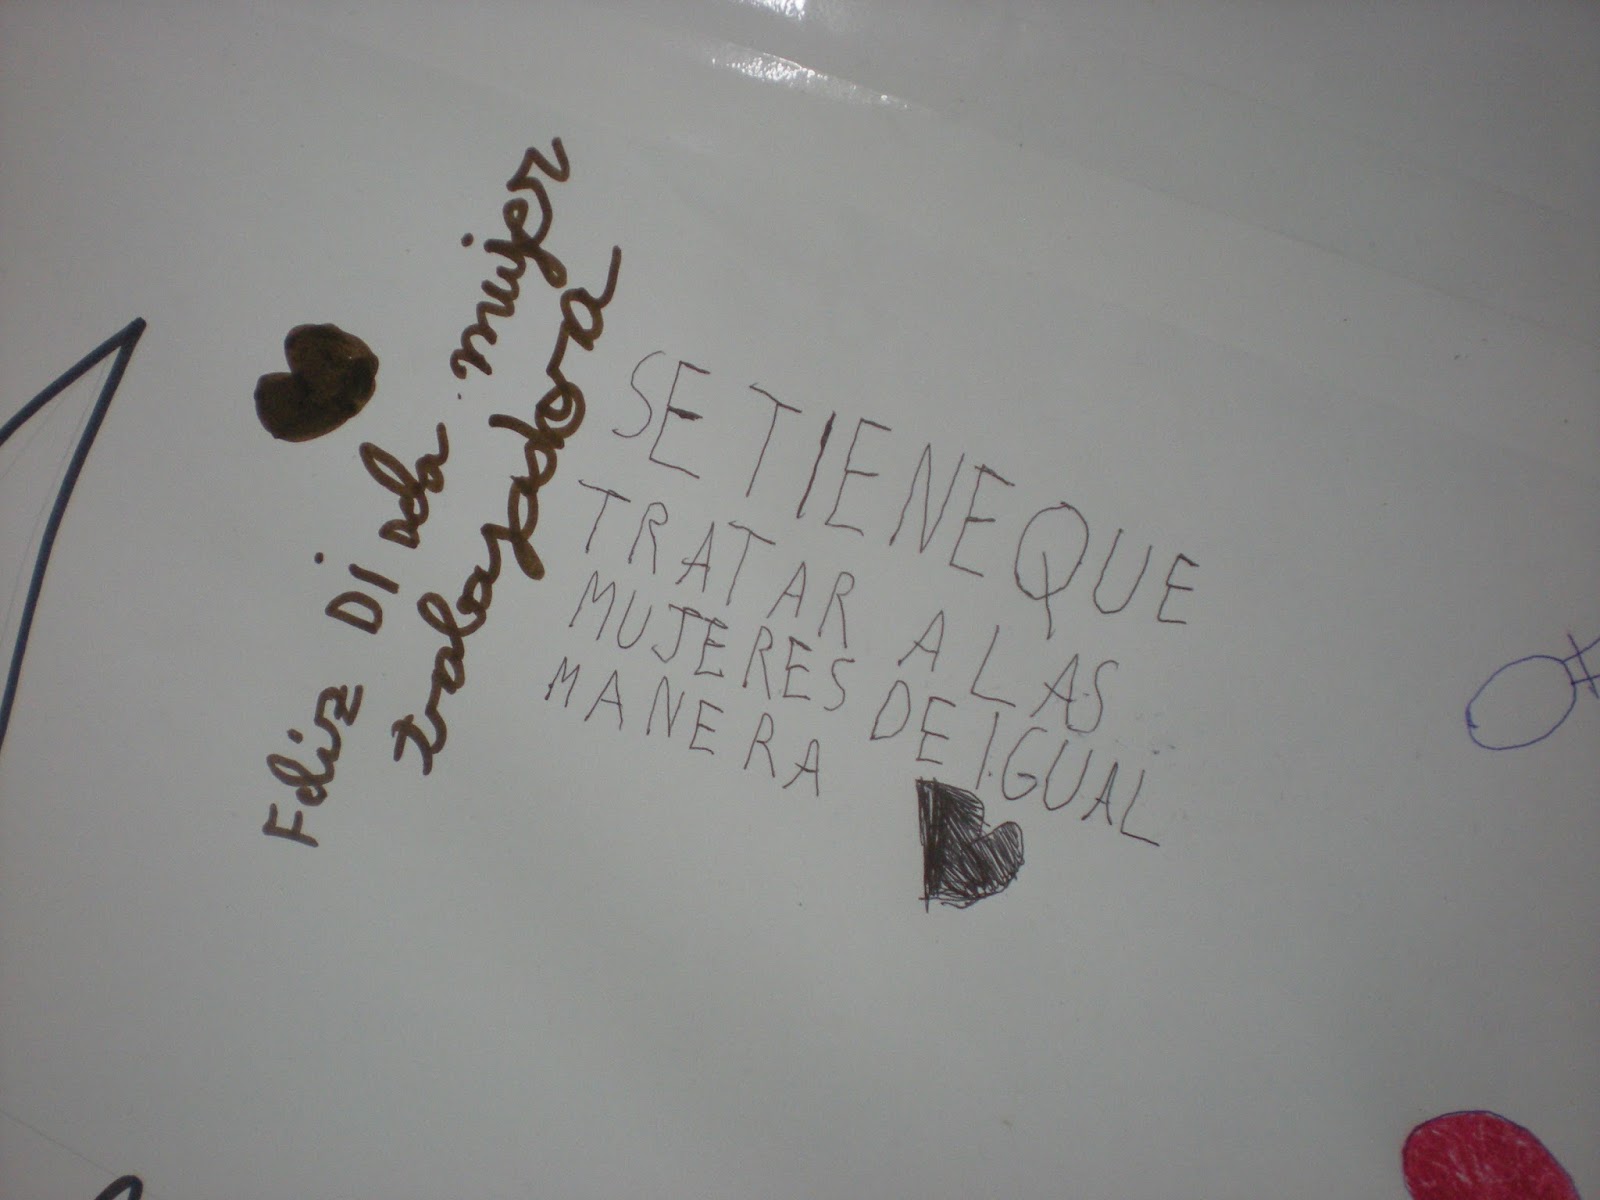 Feliz Di de la mujer
trabajadora
SE TIENE QUE
TRATAR A LAS
MUJERES DE IGUAL
MANERA